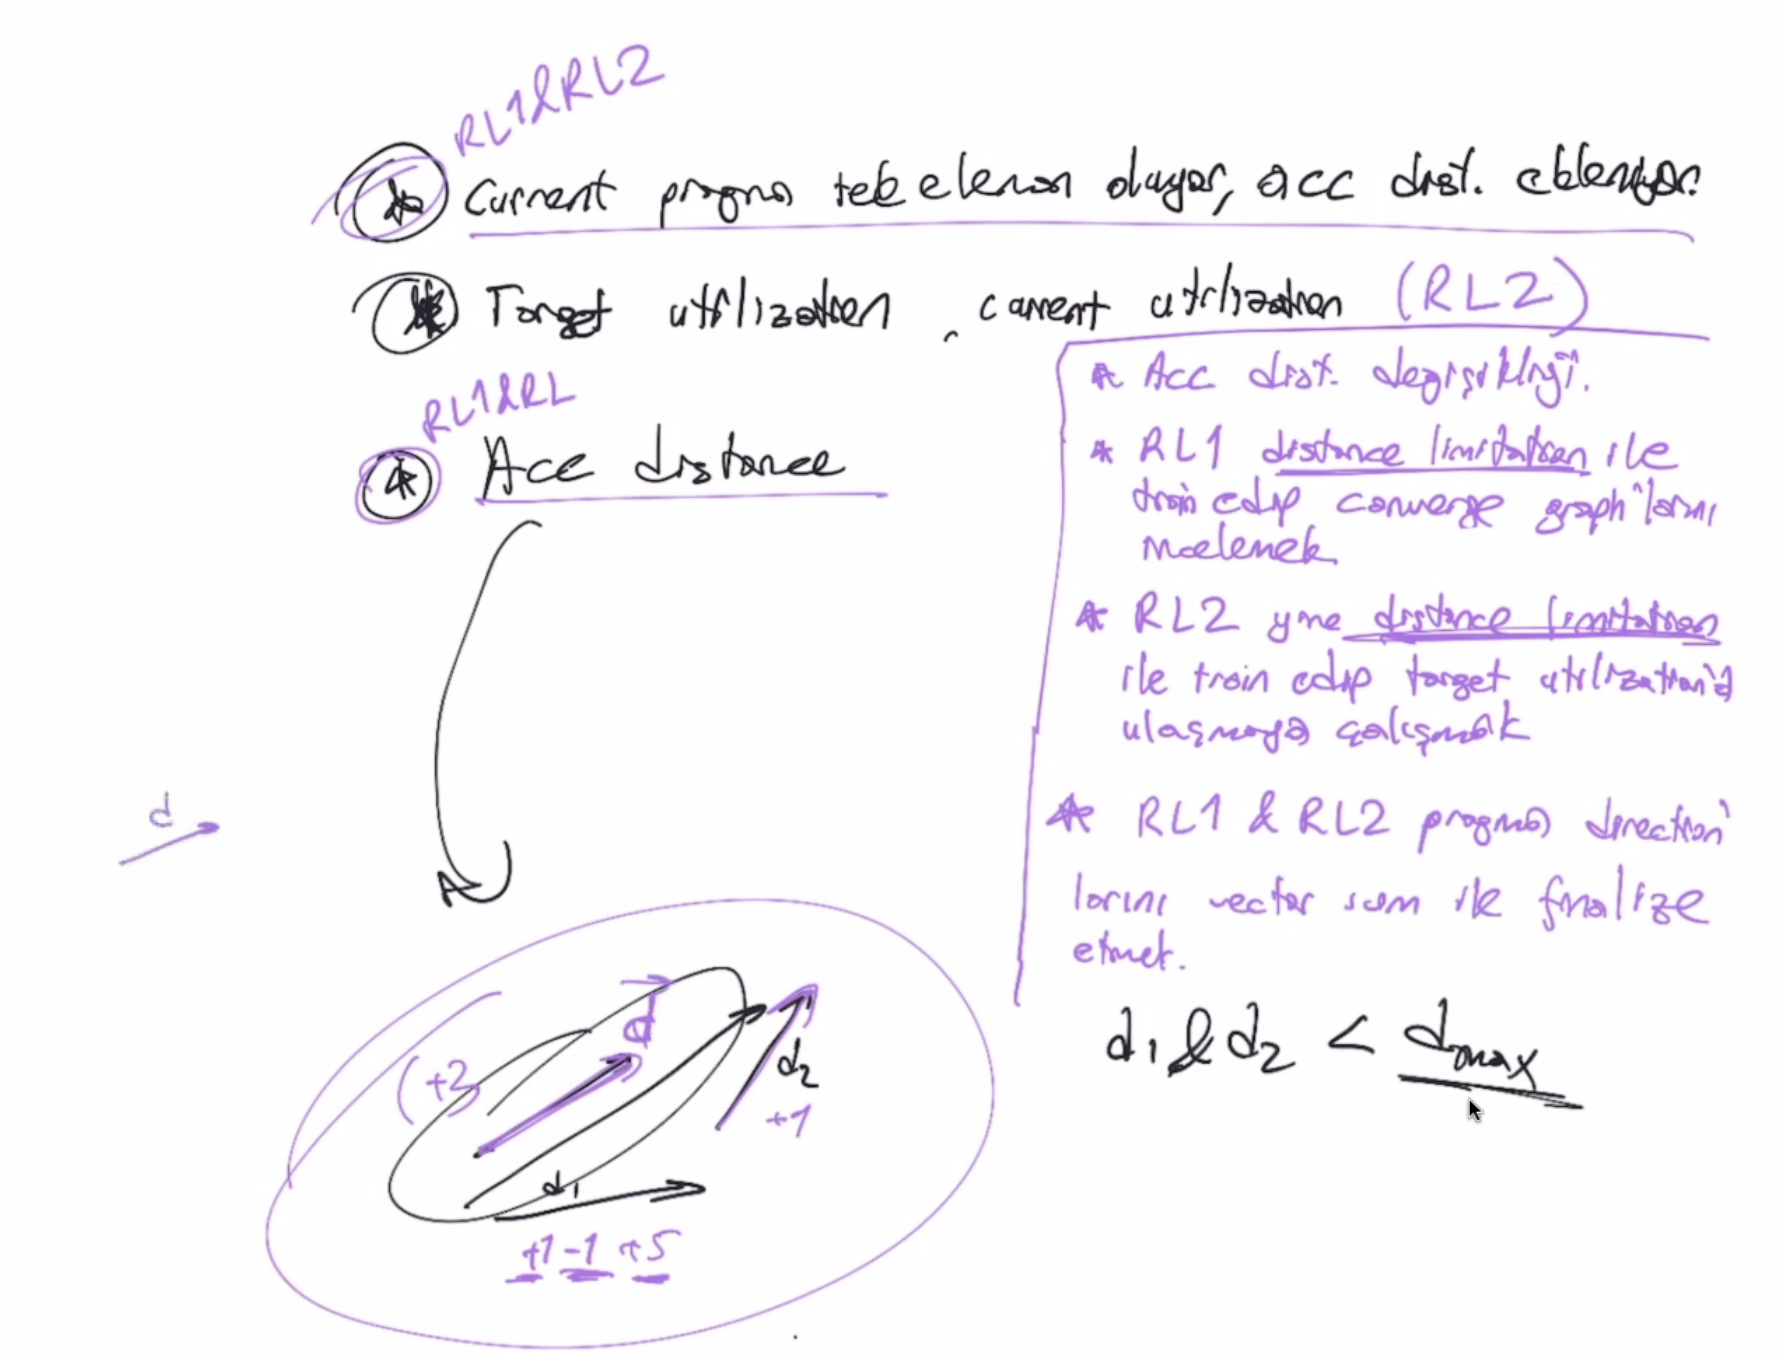 RL1&RL2
Current progno tek eleman oluyor, acc dist. ekleniyor.
Target utilization, current utilization (RL2)
* Acc dist. değişikliği.
RL1&RL
Acc distance
* RL1 distance limitation ile
train edip converge graph'larını
incelemek
* RL2 yine distance limitation
ile train edip target utilization'a
ulaşmaya çalışmak
* RL1 & RL2 prognos direction'
larını vector sum ile finalize
etmek.
d
d
(+2
d2
+1
d1
+1 -1 +5
d1 & d2 < dmax